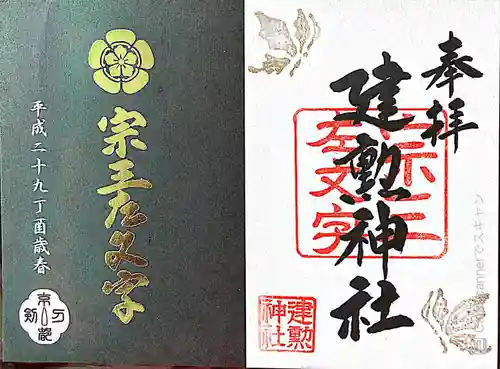 宗三左文字
平成二十九丁酉歳春
京都
刀剣
奉拝
建勲神社
宗三左文字
建勲神社
Scannerでスキャン